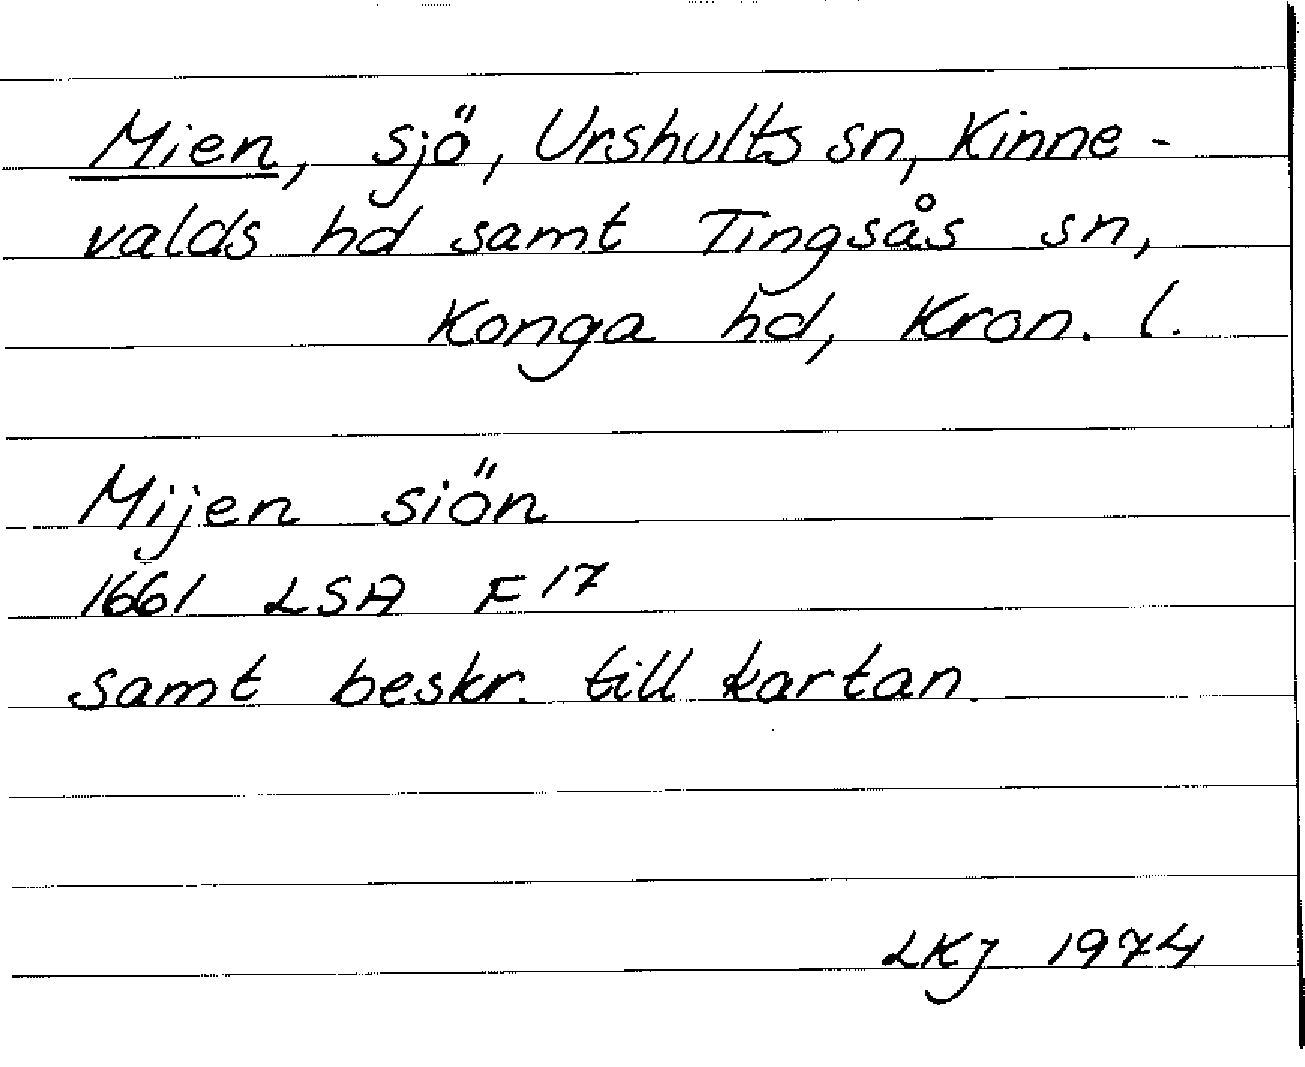 Mien, sjö, Urshults sn, Kinne-
valds hd samt Tingsås sn,
Konga hd, Kron. l.
Mijen siön
1661 LSA F 17
samt beskr. till kartan.
LKJ 1974